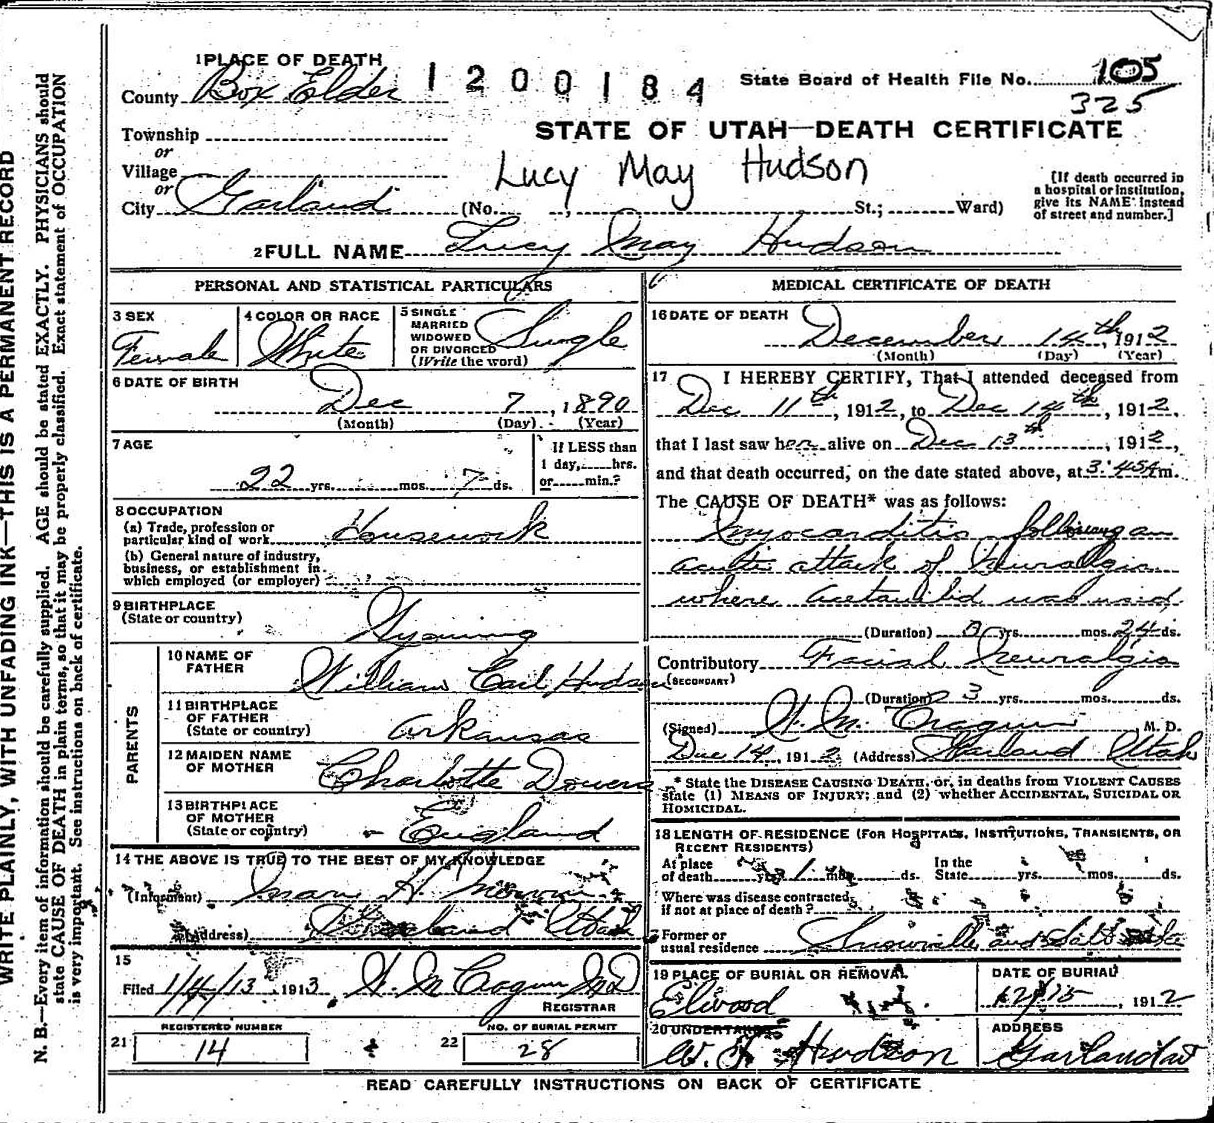 1 PLACE OF DEATH
County Box Elder
1200184
State Board of Health File No. 105
325
Township
or
Village
or
City Garland
STATE OF UTAH—DEATH CERTIFICATE
Lucy May Hudson
(No. , St.; Ward)
[If death occurred in
a hospital or institution,
give its NAME instead
of street and number.]
2 FULL NAME Lucy May Hudson
PERSONAL AND STATISTICAL PARTICULARS
3 SEX
Female
4 COLOR OR RACE
White
5 SINGLE
MARRIED
WIDOWED
OR DIVORCED
(Write the word)
Single
6 DATE OF BIRTH
Dec 7, 1890
(Month) (Day) (Year)
7 AGE
22 yrs. mos. 7 ds.
If LESS than
1 day, hrs.
or min.?
8 OCCUPATION
(a) Trade, profession or
particular kind of work Housework
(b) General nature of industry,
business, or establishment in
which employed (or employer)
9 BIRTHPLACE
(State or country)
Wyoming
PARENTS
10 NAME OF
FATHER
William Earl Hudson
11 BIRTHPLACE
OF FATHER
(State or country)
Arkansas
12 MAIDEN NAME
OF MOTHER
Charlotte Dowens
13 BIRTHPLACE
OF MOTHER
(State or country)
England
14 THE ABOVE IS TRUE TO THE BEST OF MY KNOWLEDGE
(Informant) Mary H.
(Address) Garland Utah
15
Filed 1/4/13 1913 M D
REGISTRAR
REGISTERED NUMBER
21 14
NO. OF BURIAL PERMIT
22 28
MEDICAL CERTIFICATE OF DEATH
16 DATE OF DEATH
December 14th, 1912
(Month) (Day) (Year)
17 I HEREBY CERTIFY, That I attended deceased from
Dec 11th, 1912, to Dec 14th, 1912,
that I last saw her alive on Dec 13, 1912,
and that death occurred, on the date stated above, at 3:45A m.
The CAUSE OF DEATH* was as follows:
Myocarditis following an
acute attack of Neuralgia
where acetanilid was used
(Duration) yrs. mos. 24 ds.
Contributory Facial Neuralgia
(SECONDARY)
(Duration) 3 yrs. mos. ds.
(Signed) M. D.
Dec 14, 1912 (Address) Garland Utah
* State the DISEASE CAUSING DEATH, or, in deaths from VIOLENT CAUSES
state (1) MEANS OF INJURY; and (2) whether ACCIDENTAL, SUICIDAL OR
HOMICIDAL.
18 LENGTH OF RESIDENCE (FOR HOSPITALS, INSTITUTIONS, TRANSIENTS, OR
RECENT RESIDENTS)
At place
of death yrs. 1 mos. ds.
In the
State yrs. mos. ds.
Where was disease contracted,
if not at place of death?
Former or
usual residence Snowville and Salt Lake
19 PLACE OF BURIAL OR REMOVAL
Elwood
DATE OF BURIAL
12/15, 1912
20 UNDERTAKER
W. F. Hudson
ADDRESS
Garland
READ CAREFULLY INSTRUCTIONS ON BACK OF CERTIFICATE
WRITE PLAINLY, WITH UNFADING INK—THIS IS A PERMANENT RECORD
N. B.—Every item of information should be carefully supplied. AGE should be stated EXACTLY. PHYSICIANS should
state CAUSE OF DEATH in plain terms, so that it may be properly classified. Exact statement of OCCUPATION
is very important. See instructions on back of certificate.